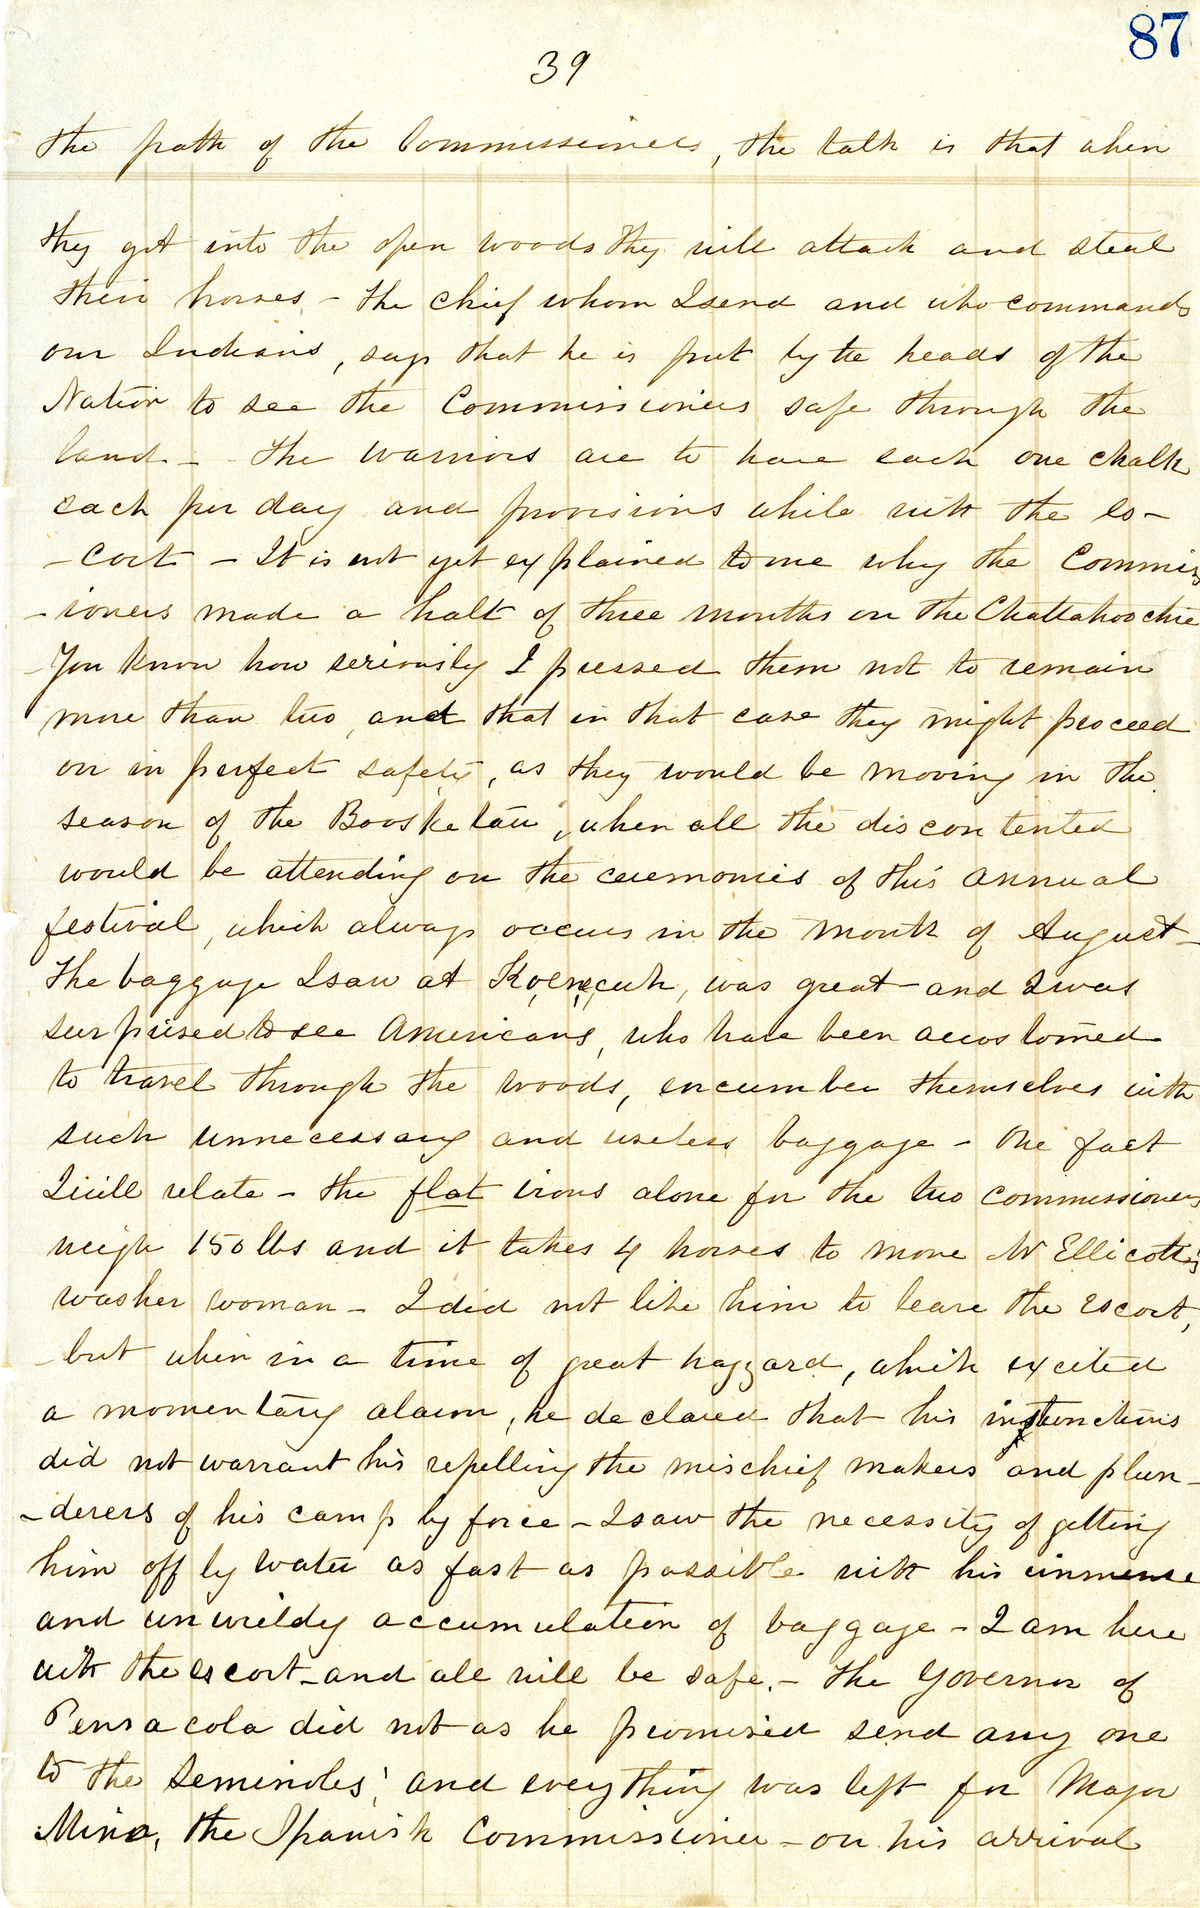 87
39
the path of the Commissioners, the talk is that when
they get into the open woods they will attack and steal
their horses - the chief whom I send and who commands
our Indians, says that he is put by the heads of the
Nation to see the Commissioners safe through the
land - the warriors are to have each one chalk
each per day and provisions while with the es-
-cort - It is not yet explained to me why the Commis
-ioners made a halt of three months on the Chattahoochie
-You know how seriously I pressed them not to remain
more than two, and that in that case they might proceed
on in perfect safety, as they would be moving in the
season of the Boosketau, when all the discontented
would be attending on the ceremonies of this annual
festival, which always occurs in the month of August-
the baggage I saw at Koenecuh, was great - and I was
surprised to see Americans, who have been accustomed
to travel through the woods, encumber themselves with
such unnecessary and useless baggage - One fact
I will relate - the flat irons alone for the two commissioners
weigh 150 lbs and it takes 4 horses to move Mr Ellicott's
washer woman - I did not like him to leave the escort,
-but when in a time of great hazzard, which excited
a momentary alarm, he declared that his instructions
did not warrant his repelling the mischief makers and plun-
-derers of his camp by force - I saw the necessity of getting
him off by water as fast as possible with his immense
and unwieldy accumulation of baggage - I am here
with the escort - and all will be safe. - The Governor of
Pensacola did not as he promised send any one
to the Seminoles, and everything was left for Major
Mino, the Spanish Commissioner - on his arrival